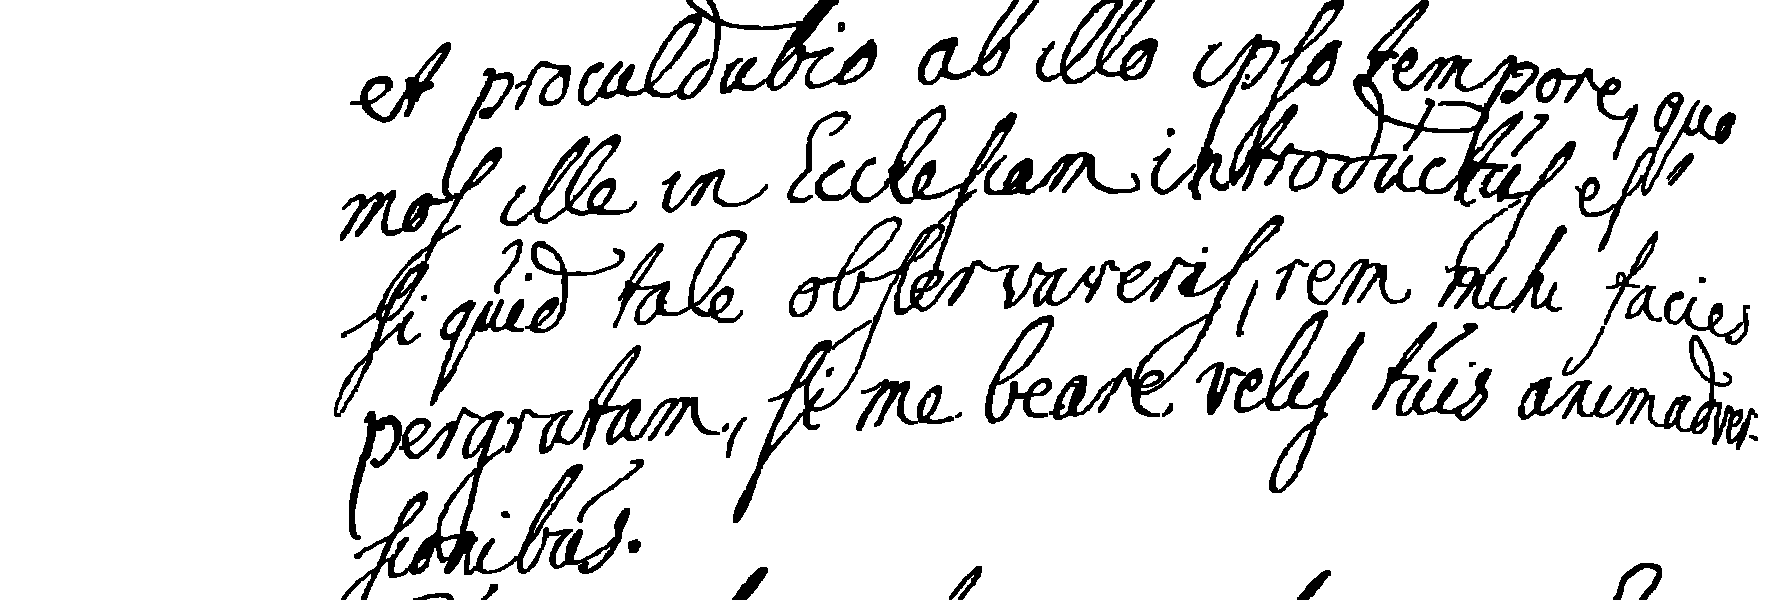 et proculdubio ab illo ipso tempore, quo
mos ille in Ecclesiam introductus est
si quid tale observaveris, rem mihi facies
pergratam, si me beare velis tuis animadver-
sionibus.